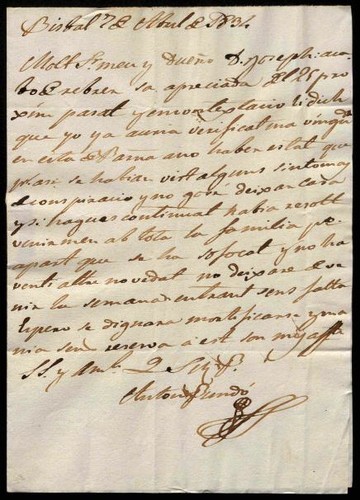 Bisbal 7 de Abril de 1834
Molt Sr. meu y Dueño Dn. Joseph: aca
bo de rebrer sa apreciada del 25 pro
xim pasat y en contextacio li dich
que yo ya auria verificat ma vinguda
en esta de Barna a no haber estat que
se habian vist alguns sintomas
de conspiracio y no gosí deixar casa
y si hagues continuat habia resolt
venirmen ab tota la familia pe
apart que se ha sofocat y no ha
vent altre novedat no deixare de ve
nir la semana entrant sens falta
Espero se dignara mortificarse y ma
nia sens reserva a est son mes aff
SS. y Amh. Q. S. M. B.
Anton